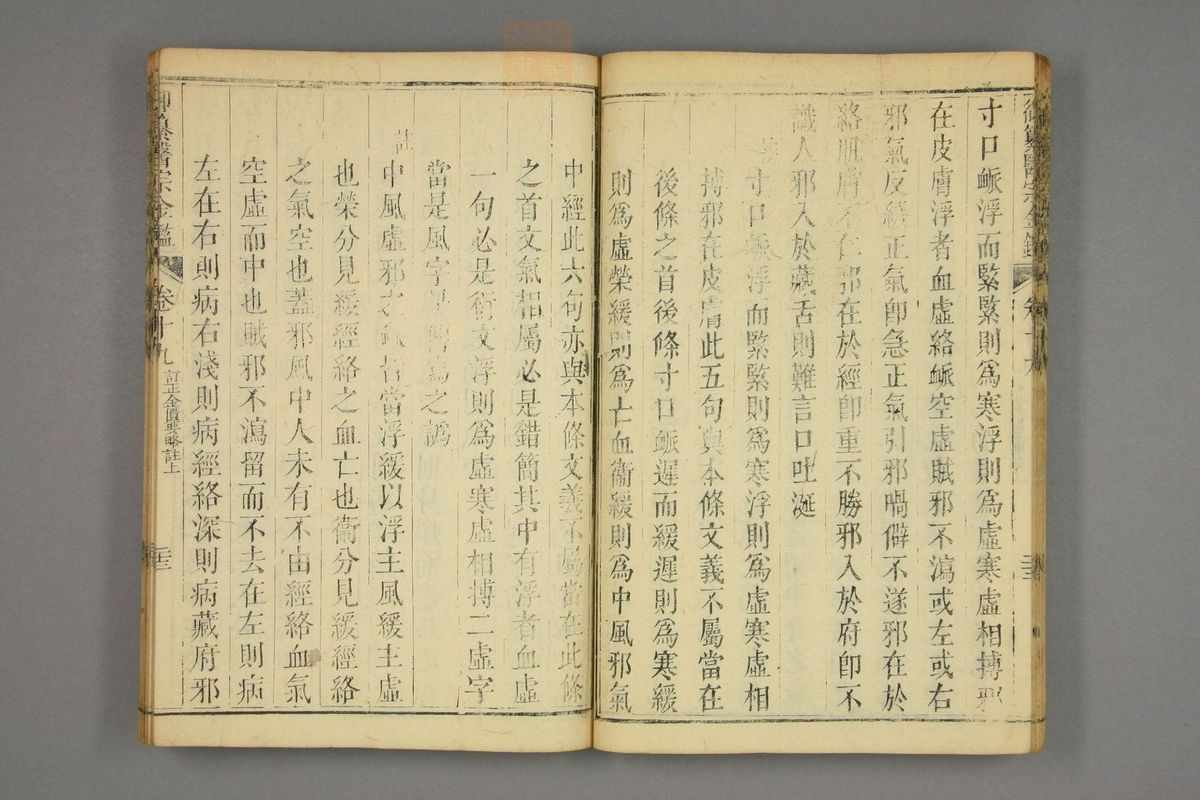 御纂醫宗金鑑 卷十九
寸口衇浮而緊緊則爲寒浮則爲虛寒虛相摶邪
在皮膚浮者血虛絡衇空虛賊邪不瀉或左或右
邪氣反緩正氣卽急正氣引邪喎僻不遂邪在於
絡肌膚不仁邪在於經卽重不勝邪入於府卽不
識人邪入於藏舌則難言口吐涎
寸口衇浮而緊緊則爲寒浮則爲虛寒虛相
摶邪在皮膚此五句與本條文義不屬當在
後條之首後條寸口衇遲而緩遲則爲寒緩
則爲虛榮緩則爲亡血衞緩則爲中風邪氣
中經此六句亦與本條文義不屬當在此條
之首文氣相屬必是錯簡其中有浮者血虛
一句必是衍文浮則爲虛寒虛相摶二虛字
當是風字是傳寫之譌
註
中風虛邪之衇皆當浮緩以浮主風緩主虛
也榮分見緩經絡之血亡也衞分見緩經絡
之氣空也蓋邪風中人未有不由經絡血氣
空虛而中也賊邪不瀉留而不去在左則病
左在右則病右淺則病經絡深則病藏府邪
御纂醫宗金鑑 卷十九 訂正金匱要略註上